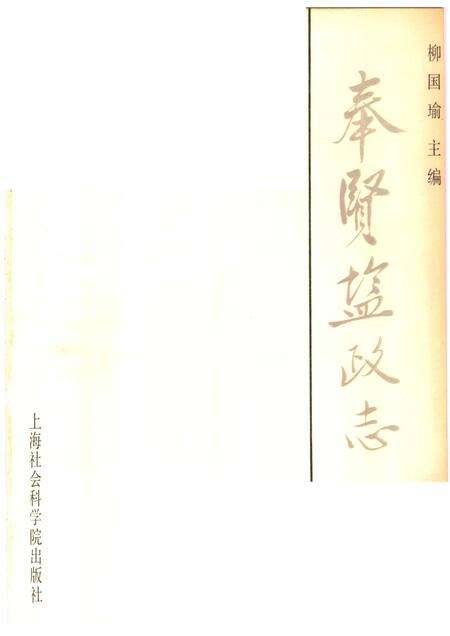 柳国瑜 主编
奉賢塩政志
上海社会科学院出版社